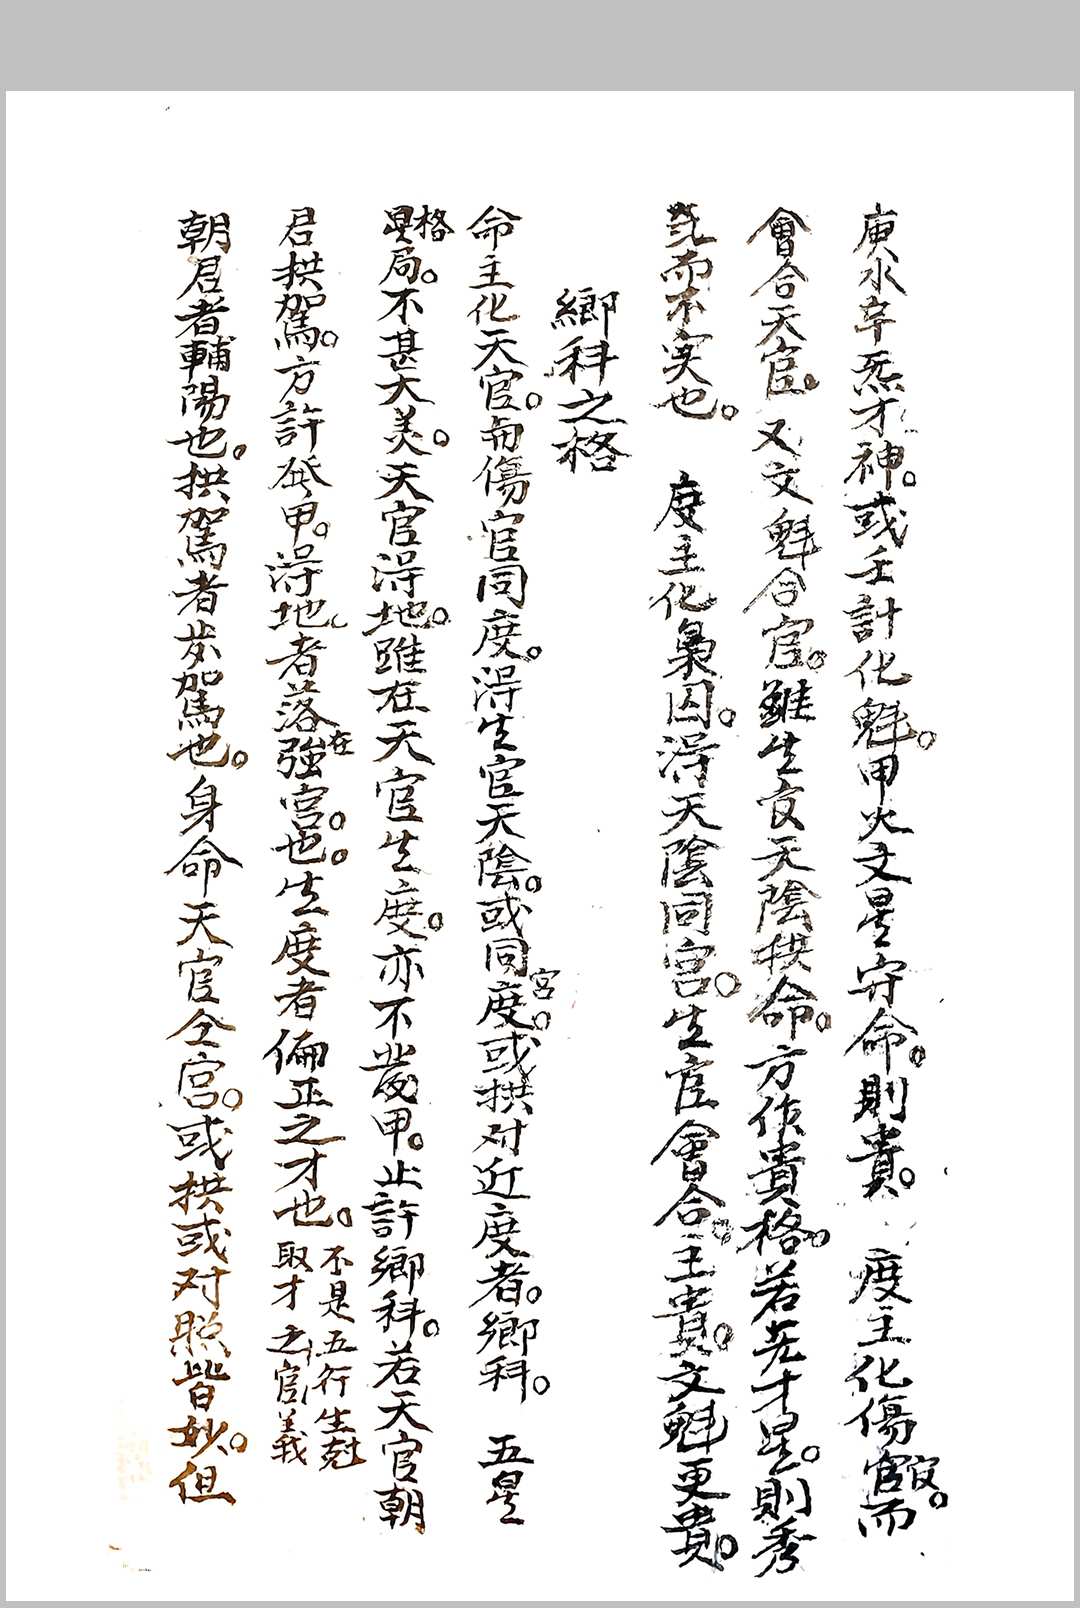 庚水辛炁才神。或壬計化魁。甲火文星守命。則貴。　度主化傷官。而
會合天官。又文魁合官。雖生官天陰拱命。方作貴格。若无才星。則秀
炁而不实也。　度主化梟囚。淂天陰同宫。生官會合。主貴。文魁更貴。
鄉科之格
命主化天官。而傷官同度。淂生官天陰。或同宮度。或拱对近度者。鄉科。　五星
格星局。不甚大美。天官淂地。雖在天官生度。亦不發甲。止許鄉科。若天官朝
君拱駕。方許發甲。淂地者落在強宫也。生度者偏正之才也。不是五行生尅
取才之官義
朝君者輔陽也。拱駕者步駕也。身命天官仝宫。或拱或对照皆妙。但